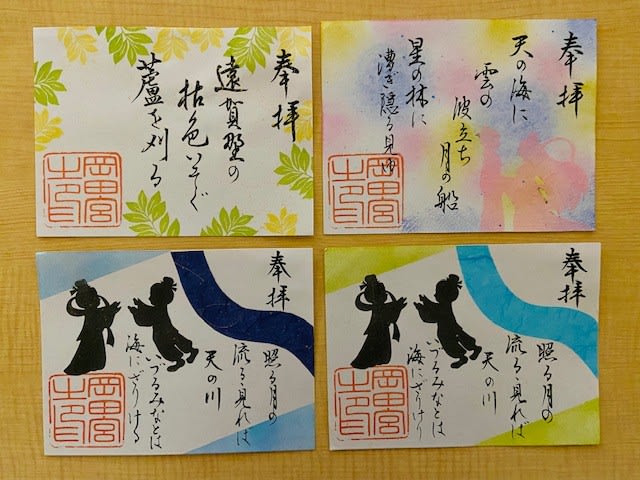 奉拝
遠賀野の
枯色いそぐ
蘆を刈る
岡田宮
奉拝
天の海に
雲の
波立ち
月の船
星の林に
漕ぎ隠る見ゆ
岡田宮
奉拝
照る月の
流るゝ見れば
天の川
いづるみなとは
海にざりける
岡田宮
奉拝
照る月の
流るゝ見れば
天の川
いづるみなとは
海にざりける
岡田宮